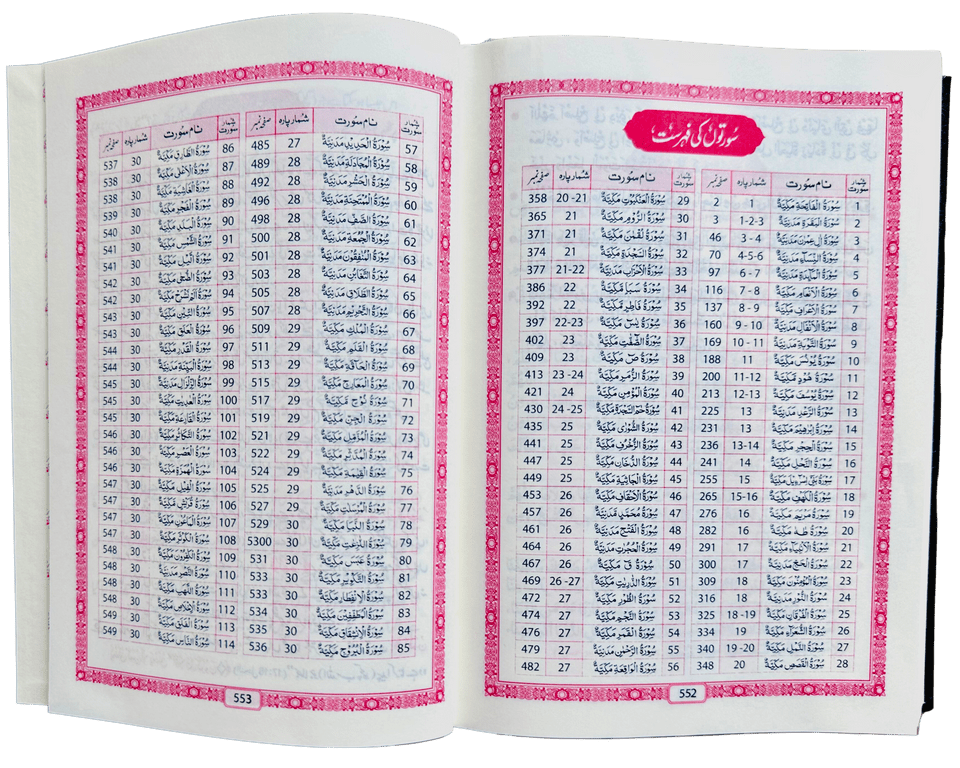 سورتوں کی فہرست
شمار سورت نام سورت شمار پارہ صفحہ نمبر
1 سورة الفاتحة مكية 1 2
2 سورة البقرة مدنية 1-2-3 3
3 سورة ال عمرن مدنية 3-4 46
4 سورة النساء مدنية 4-5-6 70
5 سورة المائدة مدنية 6-7 97
6 سورة الانعام مكية 7-8 116
7 سورة الاعراف مكية 8-9 137
8 سورة الانفال مدنية 9-10 160
9 سورة التوبة مدنية 10-11 169
10 سورة يونس مكية 11 188
11 سورة هود مكية 11-12 200
12 سورة يوسف مكية 12-13 213
13 سورة الرعد مدنية 13 225
14 سورة ابرهيم مكية 13 231
15 سورة الحجر مكية 13-14 236
16 سورة النحل مكية 14 241
17 سورة بنى اسراءيل مكية 15 255
18 سورة الكهف مكية 15-16 265
19 سورة مريم مكية 16 276
20 سورة طه مكية 16 282
21 سورة الانبياء مكية 17 291
22 سورة الحج مدنية 17 300
23 سورة المؤمنون مكية 18 309
24 سورة النور مدنية 18 316
25 سورة الفرقان مكية 18-19 325
26 سورة الشعراء مكية 19 334
27 سورة النمل مكية 19-20 340
28 سورة القصص مكية 20 348
شمار سورت نام سورت شمار پارہ صفحہ نمبر
29 سورة العنكبوت مكية 20-21 358
30 سورة الروم مكية 21 365
31 سورة لقمن مكية 21 371
32 سورة السجدة مكية 21 374
33 سورة الاحزاب مدنية 21-22 377
34 سورة سبا مكية 22 386
35 سورة فاطر مكية 22 392
36 سورة يس مكية 22-23 397
37 سورة الصفت مكية 23 402
38 سورة ص مكية 23 409
39 سورة الزمر مكية 23-24 413
40 سورة المؤمن مكية 24 421
41 سورة حم السجدة مكية 24-25 430
42 سورة الشورى مكية 25 435
43 سورة الزخرف مكية 25 441
44 سورة الدخان مكية 25 447
45 سورة الجاثية مكية 25 449
46 سورة الاحقاف مكية 26 453
47 سورة محمد مدنية 26 457
48 سورة الفتح مدنية 26 461
49 سورة الحجرت مدنية 26 464
50 سورة ق مكية 26 467
51 سورة الذريت مكية 26-27 469
52 سورة الطور مكية 27 472
53 سورة النجم مكية 27 474
54 سورة القمر مكية 27 476
55 سورة الرحمن مدنية 27 479
56 سورة الواقعة مكية 27 482
552
شمار سورت نام سورت شمار پارہ صفحہ نمبر
57 سورة الحديد مدنية 27 485
58 سورة المجادلة مدنية 28 489
59 سورة الحشر مدنية 28 492
60 سورة الممتحنة مدنية 28 496
61 سورة الصف مدنية 28 498
62 سورة الجمعة مدنية 28 500
63 سورة المنفقون مدنية 28 501
64 سورة التغابن مدنية 28 503
65 سورة الطلاق مدنية 28 505
66 سورة التحريم مدنية 28 507
67 سورة الملك مكية 29 509
68 سورة القلم مكية 29 511
69 سورة الحاقة مكية 29 513
70 سورة المعارج مكية 29 515
71 سورة نوح مكية 29 517
72 سورة الجن مكية 29 519
73 سورة المزمل مكية 29 521
74 سورة المدثر مكية 29 522
75 سورة القيمة مكية 29 524
76 سورة الدهر مدنية 29 525
77 سورة المرسلت مكية 29 527
78 سورة النبا مكية 30 529
79 سورة النزعت مكية 30 5300
80 سورة عبس مكية 30 531
81 سورة التكوير مكية 30 533
82 سورة الانفطار مكية 30 533
83 سورة المطففين مكية 30 534
84 سورة الانشقاق مكية 30 535
85 سورة البروج مكية 30 536
شمار سورت نام سورت شمار پارہ صفحہ نمبر
86 سورة الطارق مكية 30 537
87 سورة الاعلى مكية 30 538
88 سورة الغاشية مكية 30 538
89 سورة الفجر مكية 30 539
90 سورة البلد مكية 30 540
91 سورة الشمس مكية 30 541
92 سورة اليل مكية 30 541
93 سورة الضحى مكية 30 542
94 سورة الم نشرح مكية 30 542
95 سورة التين مكية 30 543
96 سورة العلق مكية 30 543
97 سورة القدر مكية 30 544
98 سورة البينة مدنية 30 544
99 سورة الزلزال مدنية 30 545
100 سورة العديت مكية 30 545
101 سورة القارعة مكية 30 545
102 سورة التكاثر مكية 30 546
103 سورة العصر مكية 30 546
104 سورة الهمزة مكية 30 546
105 سورة الفيل مكية 30 547
106 سورة قريش مكية 30 547
107 سورة الماعون مكية 30 547
108 سورة الكوثر مكية 30 548
109 سورة الكفرون مكية 30 548
110 سورة النصر مدنية 30 548
111 سورة اللهب مكية 30 548
112 سورة الاخلاص مكية 30 549
113 سورة الفلق مكية 30 549
114 سورة الناس مكية 30 549
553